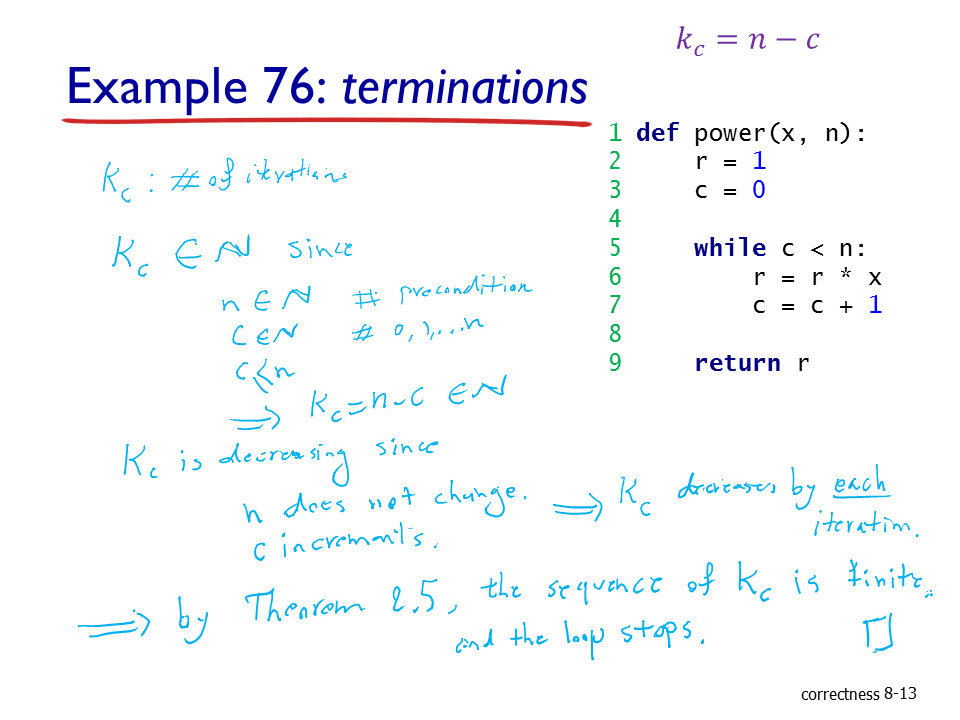 k_c = n − c
Example 76: terminations
1 def power(x, n):
2     r = 1
3     c = 0
4
5     while c < n:
6         r = r * x
7         c = c + 1
8
9     return r
K_c : # of iterations
K_c ∈ ℕ since
n ∈ ℕ # precondition
c ∈ ℕ # 0, 1, ... n
c ≤ n
⟹ K_c = n - c ∈ ℕ
K_c is decreasing since
n does not change.
c increments.
⟹ K_c decreases by each
iteration.
⟹ by Theorem 2.5, the sequence of K_c is finite.
and the loop stops. □
correctness 8-13